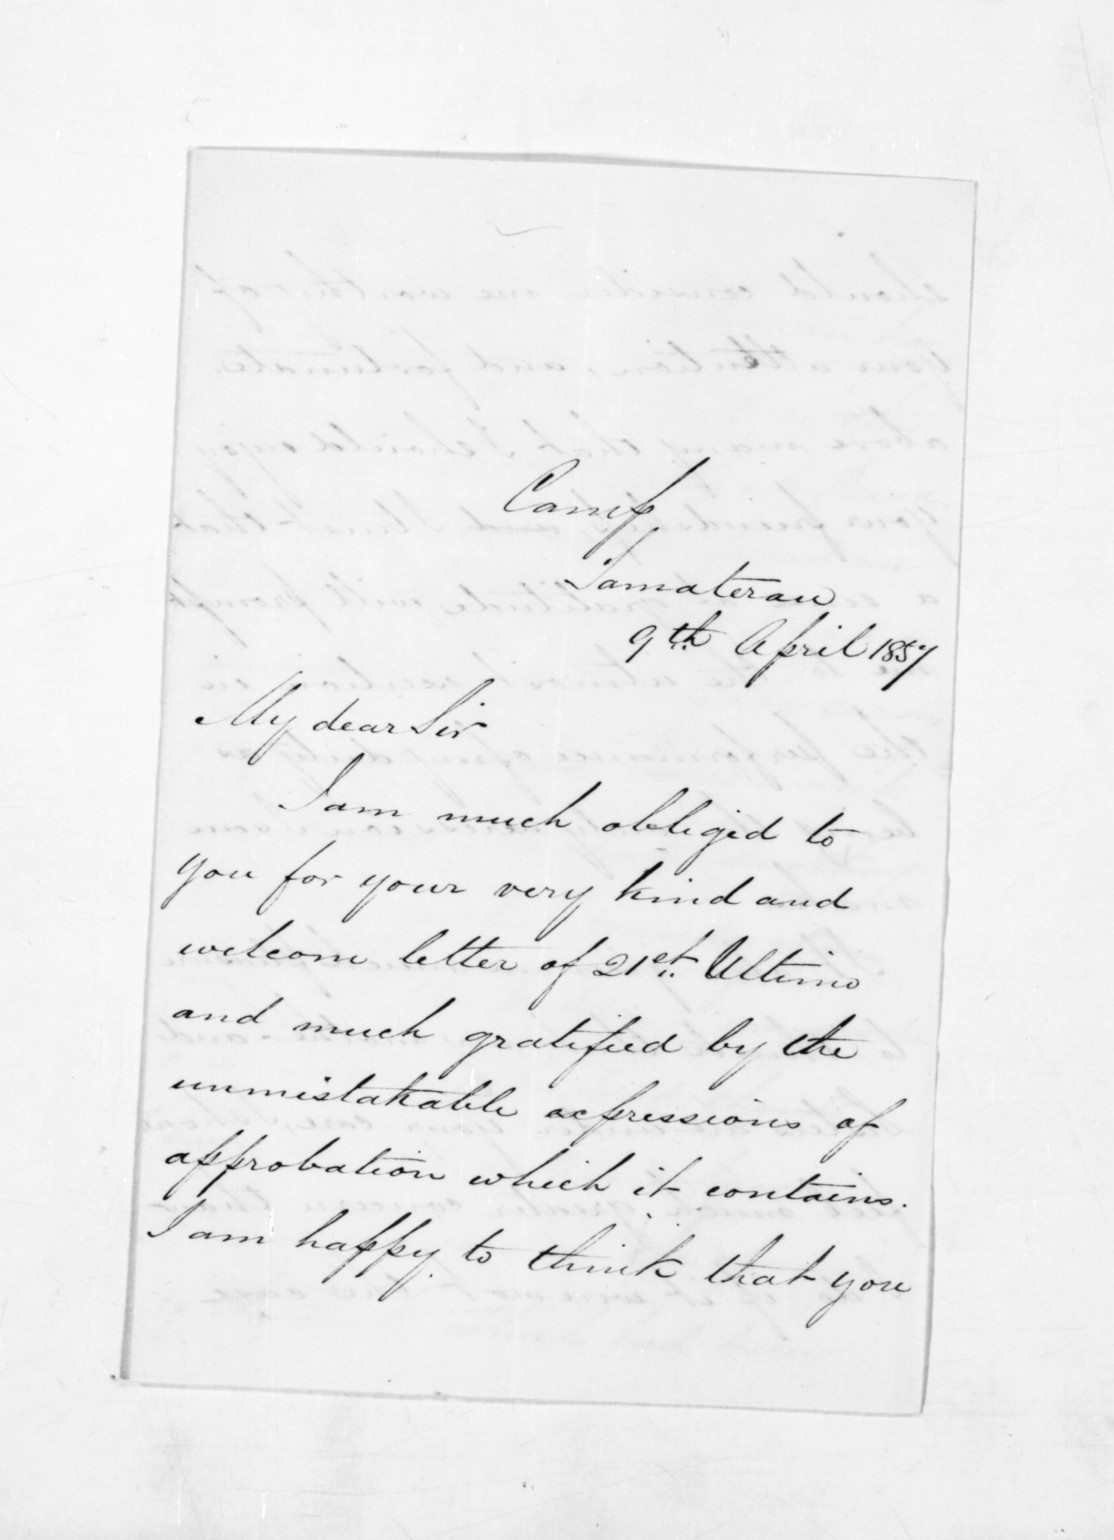 Camp
Tamaterau
9th April 1857
My dear Sir
I am much obliged to
you for your very kind and
welcome letter of 21st Ultimo
and much gratified by the
unmistakable expressions of
approbation which it contains.
I am happy to think that you